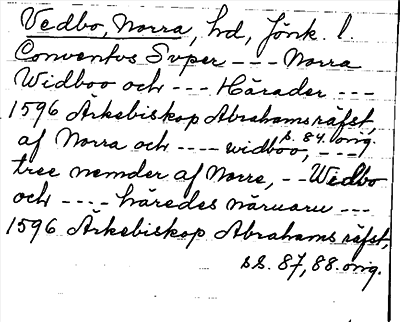 Vedbo, Norra, hd, Jönk. l.
Conventvs Svper --- Norra
Widboo och --- Härader ---
1596 Ärkebiskop Abrahams räfst,
s. 84. orig.
af Norra och ---- widboo, ---
tree nemder af Norre, -- Wedbo
och ---- häredes näruaru ---
1596 Ärkebiskop Abrahams räfst,
s.s. 87, 88. orig.